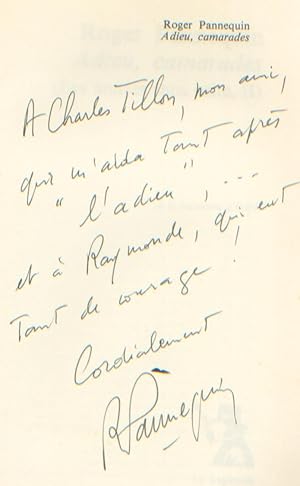 Roger Pannequin
Adieu, camarades
A Charles Tillon, mon ami,
qui m'aida tant après
" l'adieu ", ...
et à Raymonde, qui eut
tant de courage !
Cordialement
RPannequin